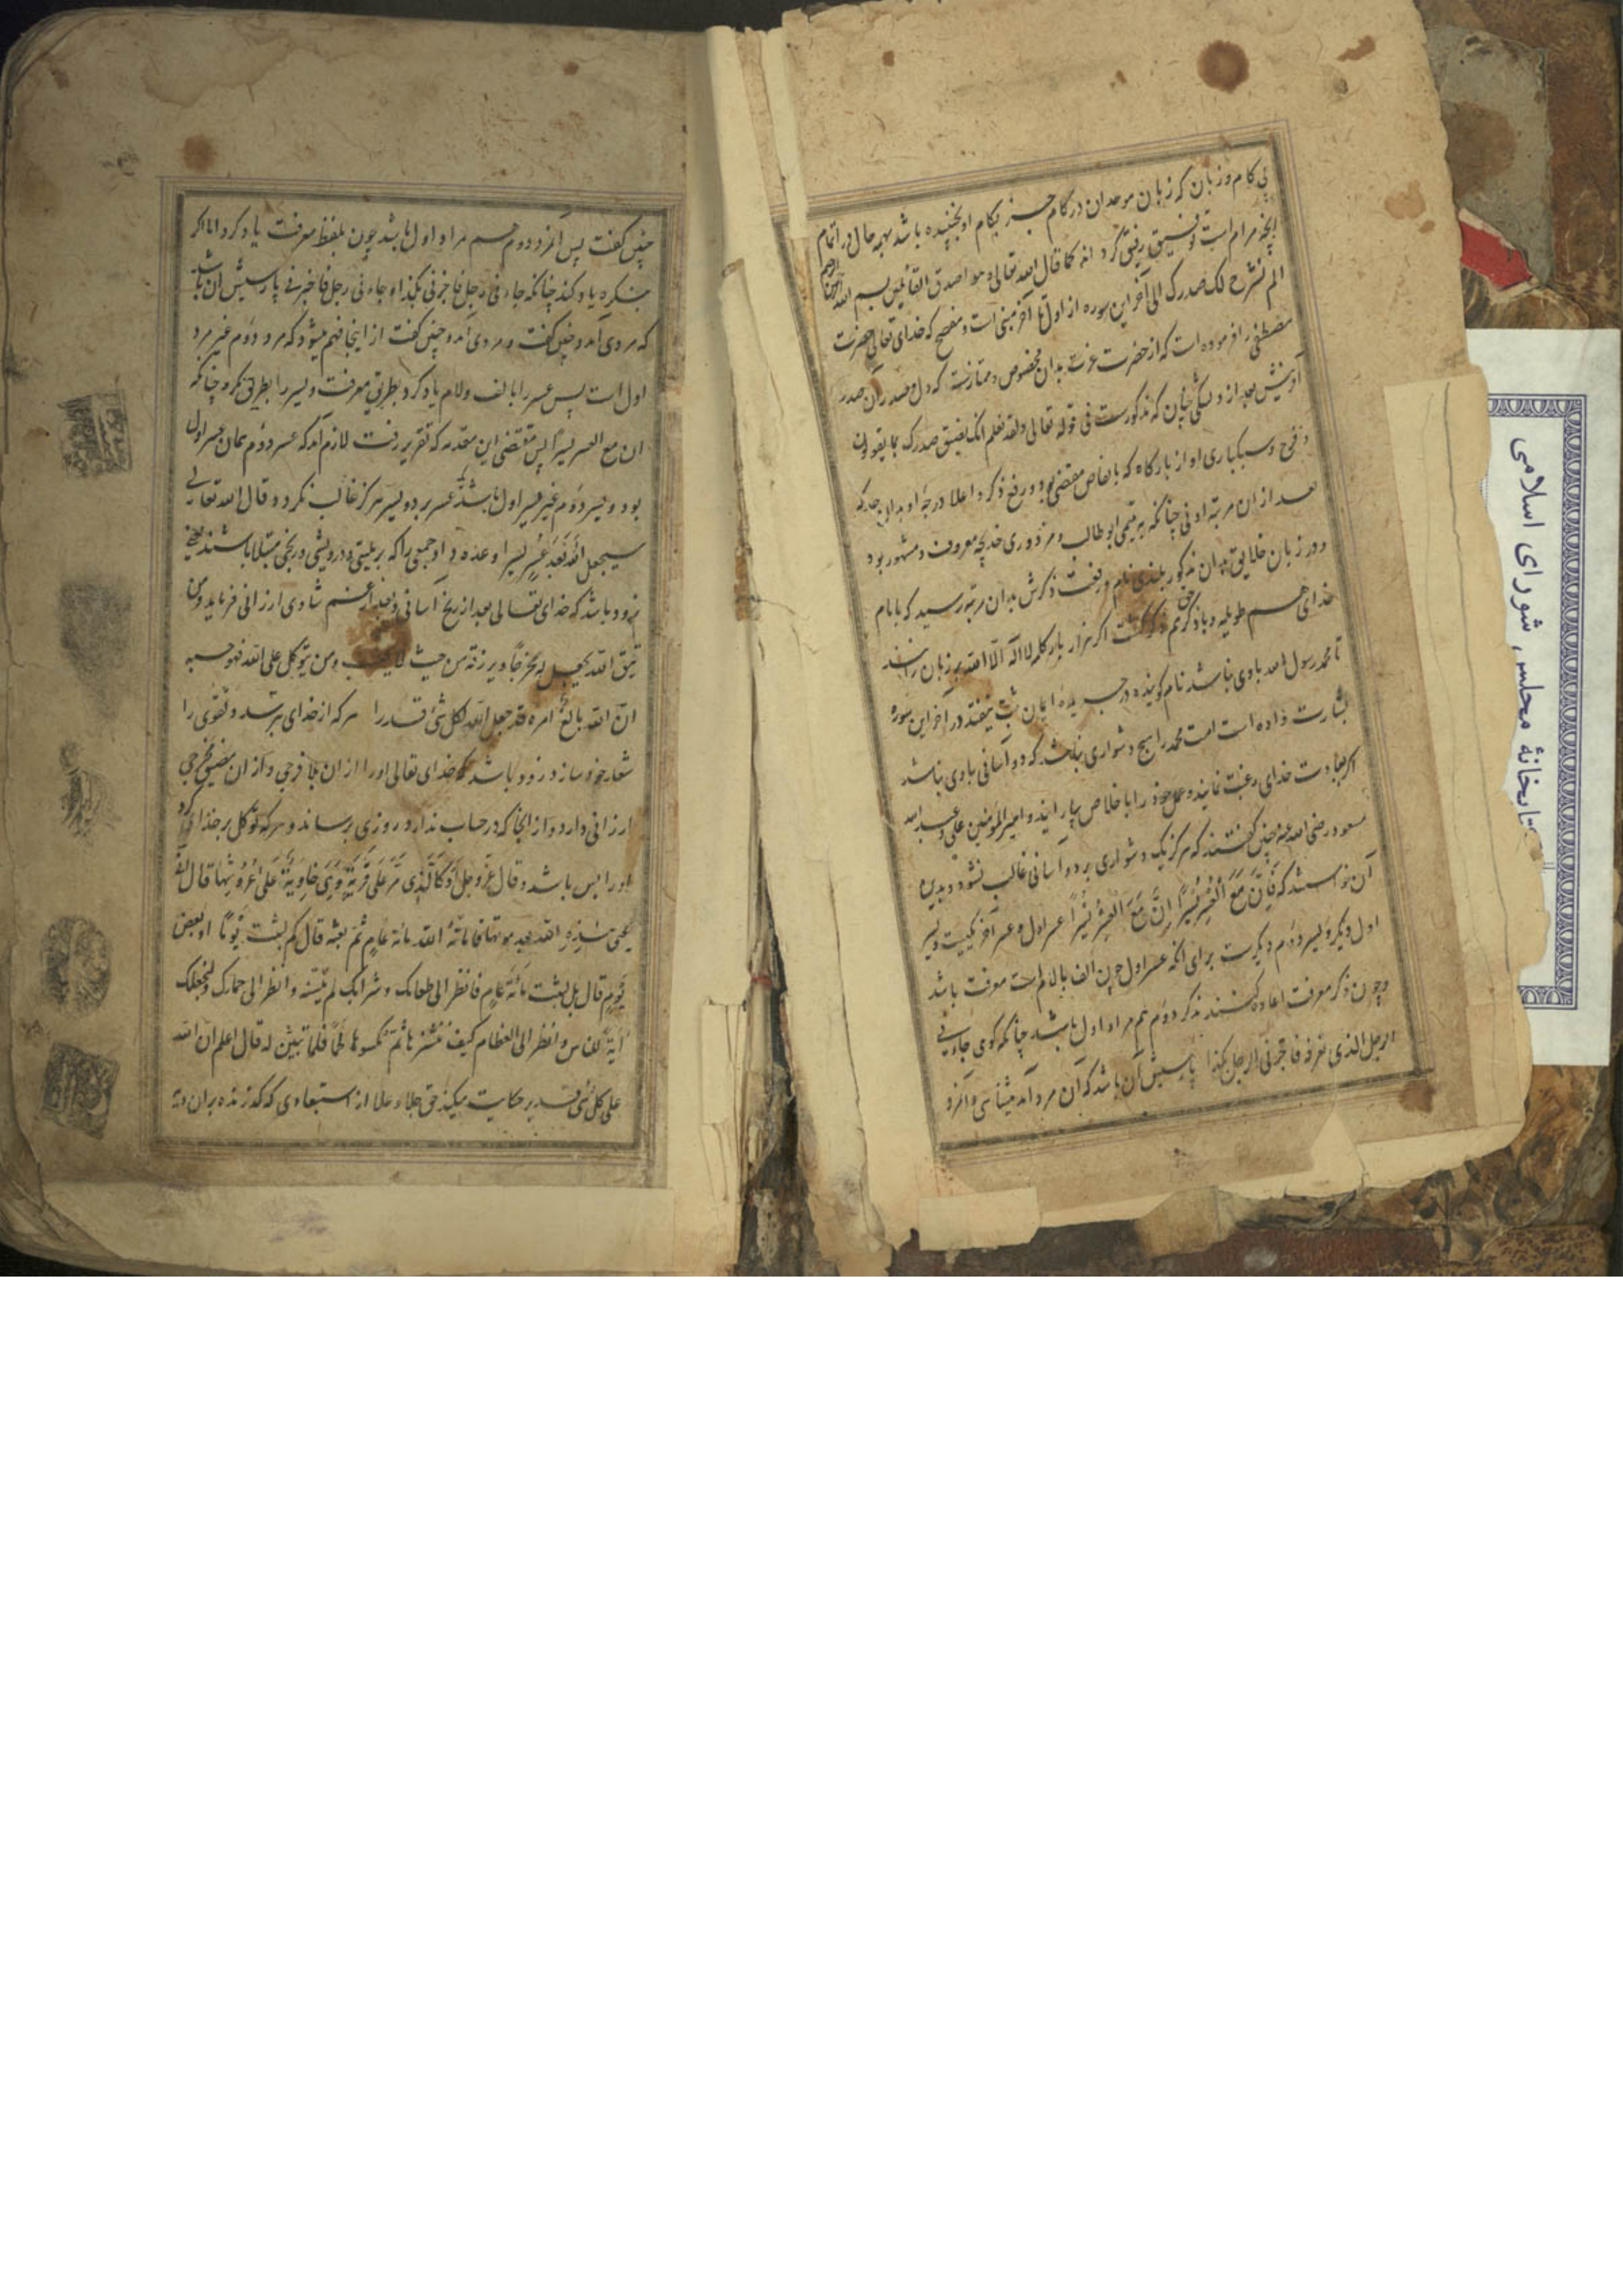 بی کام و زبان که زبان موحدان در کام جز بکام او نجنبیده باشد بهمه حال در اتمام
آنچه مرام است توفیق رفیق کرد انه کما قال الله تعالی و هو اصدق القائلین بسم الله الرحمن الرحیم
الم نشرح لک صدرک الی آخر این سوره از اول تا آخر مبنی است و مفصح که خدای تعالی حضرت
مصطفی را فرموده است که از حضرت عزت بدان مخصوص و ممتاز شده که دل و صدر آن صدر
آفرینش بعد از دلتنگی چنان که مذکورست فی قوله تعالی ولقد نعلم انک یضیق صدرک بما یقولون
و فرح و سبکباری او از بارگاه که بانقاض مقتضی بود و رفع ذکر و اعلا درجهٔ او بدان حد که
بعد از ان مرتبه ادنی چنانکه به یتیمی ابو طالب و مزدوری خدیجه معروف و مشهور بود
و در زبان خلایق بدان مذکور بلندی نام و رفعت ذکرش بدان مرتبه رسید که با نام
خدای هم طویله و با ذکر حق هم گشت اگر هزار بار کلمه لا اله الا الله بر زبان رانند
تا محمد رسول الله با وی نباشد نام گوینده در جریدهٔ ایمان ثبت نیفتد در آخر این سوره
بشارت داده است امت محمد را هیچ دشواری نباشد که دو آسانی با وی نباشد
اگر بعبادت خدای رغبت نمایند و عمل خود را با خلاص بیارایند و امیر المومنین علی و عبد الله
مسعود رضی الله عنه چنین گفتند که هرگز یک دشواری بر دو آسانی غالب نشود و بدین
آن خواستند که فَإِنَّ مَعَ الْعُسْرِ یُسْرًا إِنَّ مَعَ الْعُسْرِ یُسْرًا عسر اول و عسر آخر یکیست و یسر
اول دیگر و یسر دوم دیگرست برای آنکه عسر اول چون الف با لام است معرفت باشد
و چون ذکر معرفت اعاده کنند ذکر دوم هم مراد اول باشد چنانکه گوی جاءنی
الرجل الذی نعرفه فاخبرنی الرجل بکذا پارسیش آن باشد که آن مرد آمد میشناسی و آنمرد
چنین گفت پس آنمرد دوم هم مراد اول باشد چون بلفظ معرفت یاد کرد اما اگر
بنکره یاد کند چنانکه جاءنی رجل فاخبرنی بکذا و جاءنی رجل فاخبرنی پارسیش آن باشد
که مردی آمد و چنین گفت و مردی آمد و چنین گفت از اینجا فهم میشود که مرد دوم غیر مرد
اول است پس عسر را با الف و لام یاد کرد بطریق معرفت و یسر را بطریق نکره چنانکه
ان مع العسر یسرا پس مقتضی این مقدمه که تقریر رفت لازم آمد که عسر دوم همان عسر اول
بود و یسر دوم غیر یسر اول باشد یک عسر بر دو یسر هرگز غالب نکردد و قال الله تعالی
سیجعل الله بَعدَ عُسرٍ یسرا وعده داد جمعی را که بر بلیتی و درویشی و رنجی مبتلا باشند
زود باشد که خدای تعالی بعد از رنج آسانی و بعد از غم شادی ارزانی فرماید و من
یتق الله یجعل له مخرجاً و یرزقه من حیث لا یحتسب و من یتوکل علی الله فهو حسبه
انّ الله بالغُ امره قد جعل الله لکل شئ قدرا هر که از خدای بترسد و تقوی را
شعار خود سازد زود باشد که خدای تعالی او را از ان بلا فرجی و از ان مضیق مخرجی
ارزانی دارد و از انجا که در حساب ندارد روزی برساند و هر که توکل بر خدای کرد
او را بس باشد و قال عزّ و جلّ أَوْ کَالَّذِی مَرَّ عَلَی قَرْیَةٍ وَهِیَ خَاوِیَةٌ عَلَی عُرُوشِهَا قال انّی
یُحیی هٰذِهِ الله بعد موتها فاماتهُ الله مائة عامٍ ثمّ بعثه قال کم لبثت یوماً او بعض
یَومٍ قال بل لبثت مائَةَ عامٍ فانظر الی طعامک و شرابک لم یتسنّه و انظر الی حمارک و لنجعلک
آیَةً للناس و انظر الی العظام کیف ننشزها ثمّ نکسوها لحماً فلما تبیّن له قال اعلم انّ الله
علی کل شئ قدیر حکایت میکند حق جلا و علا از استبعادی که گذرنده بر ان دیه
کتابخانهٔ مجلس شورای اسلامی